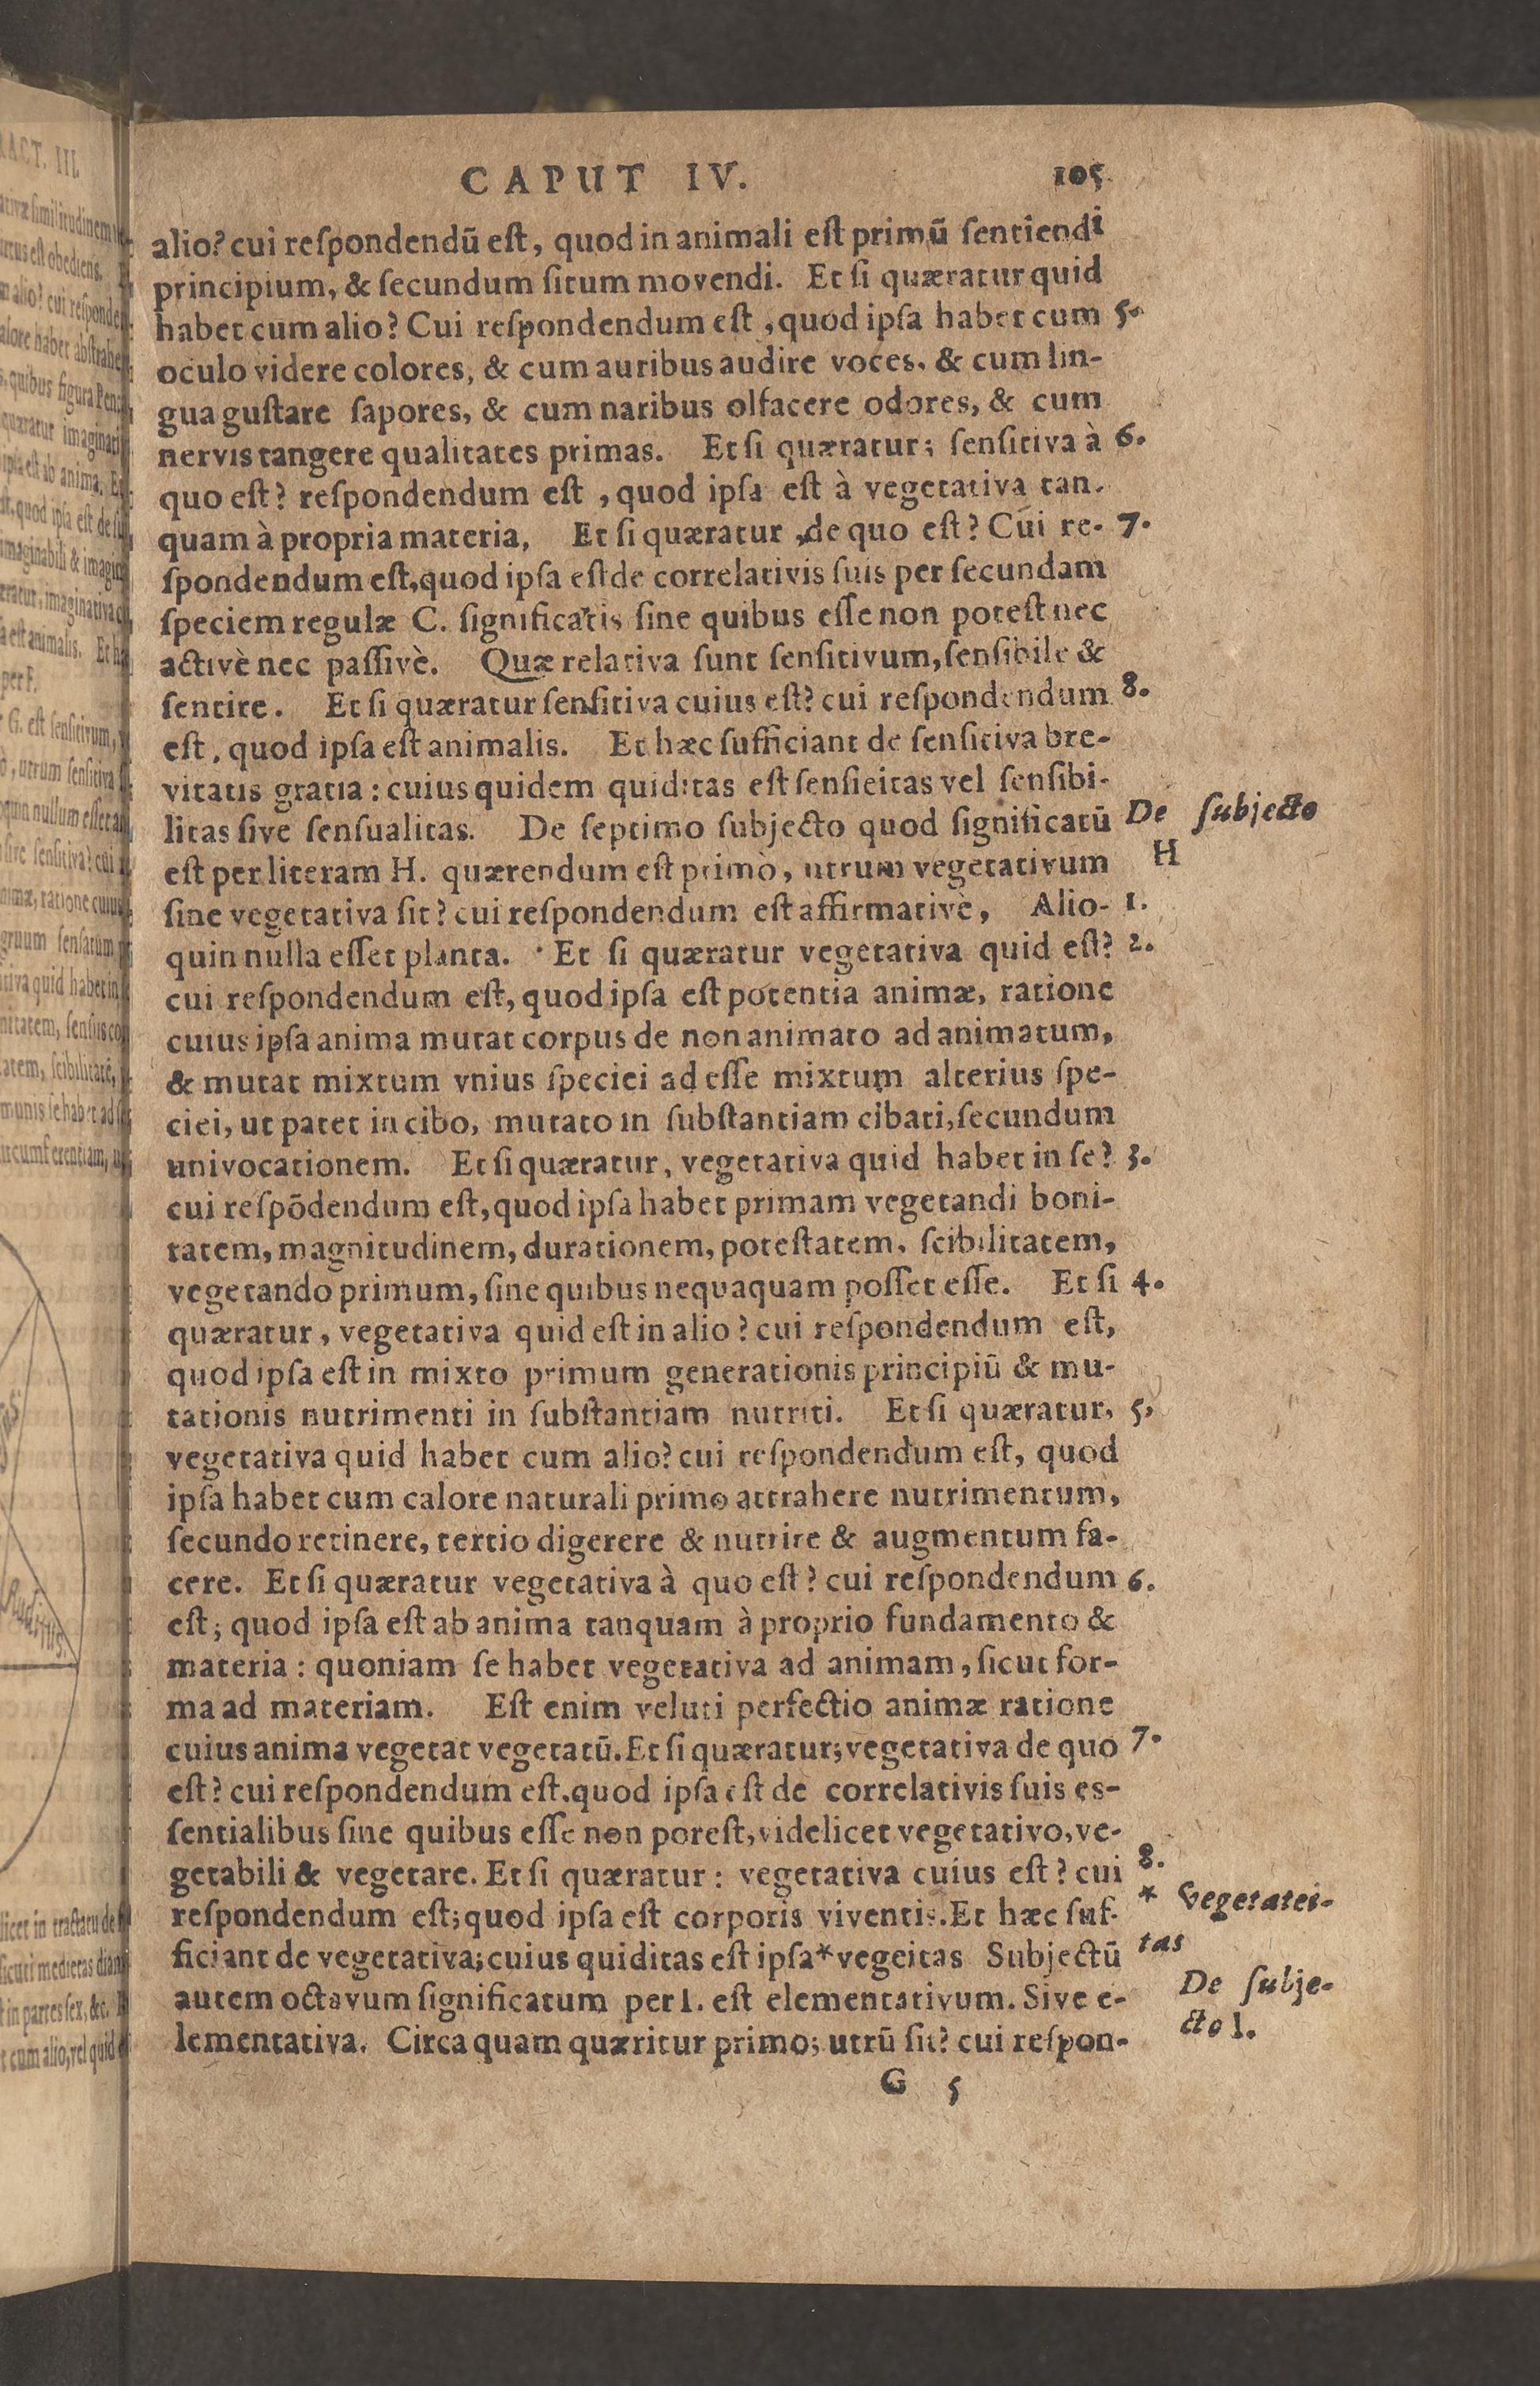 CAPUT IV. 105
alio? cui reſpondendū eſt, quod in animali eſt primū ſentiendi
principium, & ſecundum ſitum movendi. Et ſi quæratur quid
habet cum alio? Cui reſpondendum eſt, quod ipſa habet cum 5.
oculo videre colores, & cum auribus audire voces, & cum lin-
gua guſtare ſapores, & cum naribus olfacere odores, & cum
nervis tangere qualitates primas. Et ſi quæratur; ſenſitiva à 6.
quo eſt? reſpondendum eſt, quod ipſa eſt à vegetativa tan-
quam à propria materia, Et ſi quæratur, de quo eſt? Cui re- 7.
ſpondendum eſt, quod ipſa eſt de correlativis ſuis per ſecundam
ſpeciem regulæ C. ſignificatis ſine quibus eſſe non poteſt nec
activè nec paſſivè. Quæ relativa ſunt ſenſitivum, ſenſibile &
ſentire. Et ſi quæratur ſenſitiva cuius eſt? cui reſpondendum 8.
eſt, quod ipſa eſt animalis. Et hæc ſufficiant de ſenſitiva bre-
vitatis gratia: cuius quidem quiditas eſt ſenſieitas vel ſenſibi-
litas ſive ſenſualitas. De ſeptimo ſubjecto quod ſignificatū De ſubjecto
eſt per literam H. quærendum eſt primò, utrum vegetativum H
ſine vegetativa ſit? cui reſpondendum eſt affirmativè, Alio- 1.
quin nulla eſſet planta. Et ſi quæratur vegetativa quid eſt? 2.
cui reſpondendum eſt, quod ipſa eſt potentia animæ, ratione
cuius ipſa anima mutat corpus de non animato ad animatum,
& mutat mixtum vnius ſpeciei ad eſſe mixtum alterius ſpe-
ciei, ut patet in cibo, mutato in ſubſtantiam cibati, ſecundum
univocationem. Et ſi quæratur, vegetativa quid habet in ſe? 3.
cui reſpōdendum eſt, quod ipſa habet primam vegetandi boni-
tatem, magnitudinem, durationem, poteſtatem, ſcibilitatem,
vegetando primum, ſine quibus nequaquam poſſet eſſe. Et ſi 4.
quæratur, vegetativa quid eſt in alio? cui reſpondendum eſt,
quod ipſa eſt in mixto primum generationis principiū & mu-
tationis nutrimenti in ſubſtantiam nutriti. Et ſi quæratur, 5,
vegetativa quid habet cum alio? cui reſpondendum eſt, quod
ipſa habet cum calore naturali primo attrahere nutrimentum,
ſecundo retinere, tertio digerere & nutrire & augmentum fa-
cere. Et ſi quæratur vegetativa à quo eſt? cui reſpondendum 6.
eſt; quod ipſa eſt ab anima tanquam à proprio fundamento &
materia: quoniam ſe habet vegetativa ad animam, ſicut for-
ma ad materiam. Eſt enim veluti perfectio animæ ratione
cuius anima vegetat vegetatū. Et ſi quæratur; vegetativa de quo 7.
eſt? cui reſpondendum eſt, quod ipſa eſt de correlativis ſuis es-
ſentialibus ſine quibus eſſe non poreſt, videlicet vegetativo, ve-
getabili & vegetare. Et ſi quæratur: vegetativa cuius eſt? cui 8.
reſpondendum eſt; quod ipſa eſt corporis viventis. Et hæc ſuf- * Vegetatei-
ficiant de vegetativa; cuius quiditas eſt ipſa* vegeitas Subjectū tas
autem octavum ſignificatum per I. eſt elementativum. Sive e- De ſubje-
lementativa. Circa quam quæritur primo; utrū ſit? cui reſpon- cto I.
G 5